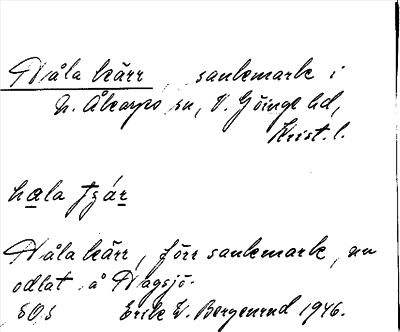 Håla kärr, sankmark i
N. Åkarps sn, V. Göinge hd,
Krist. l.
hala tʃär
Håla kärr, förr sankmark, nu
odlat å Hagsjö.
SOS Erik W. Bergenrud 1946.